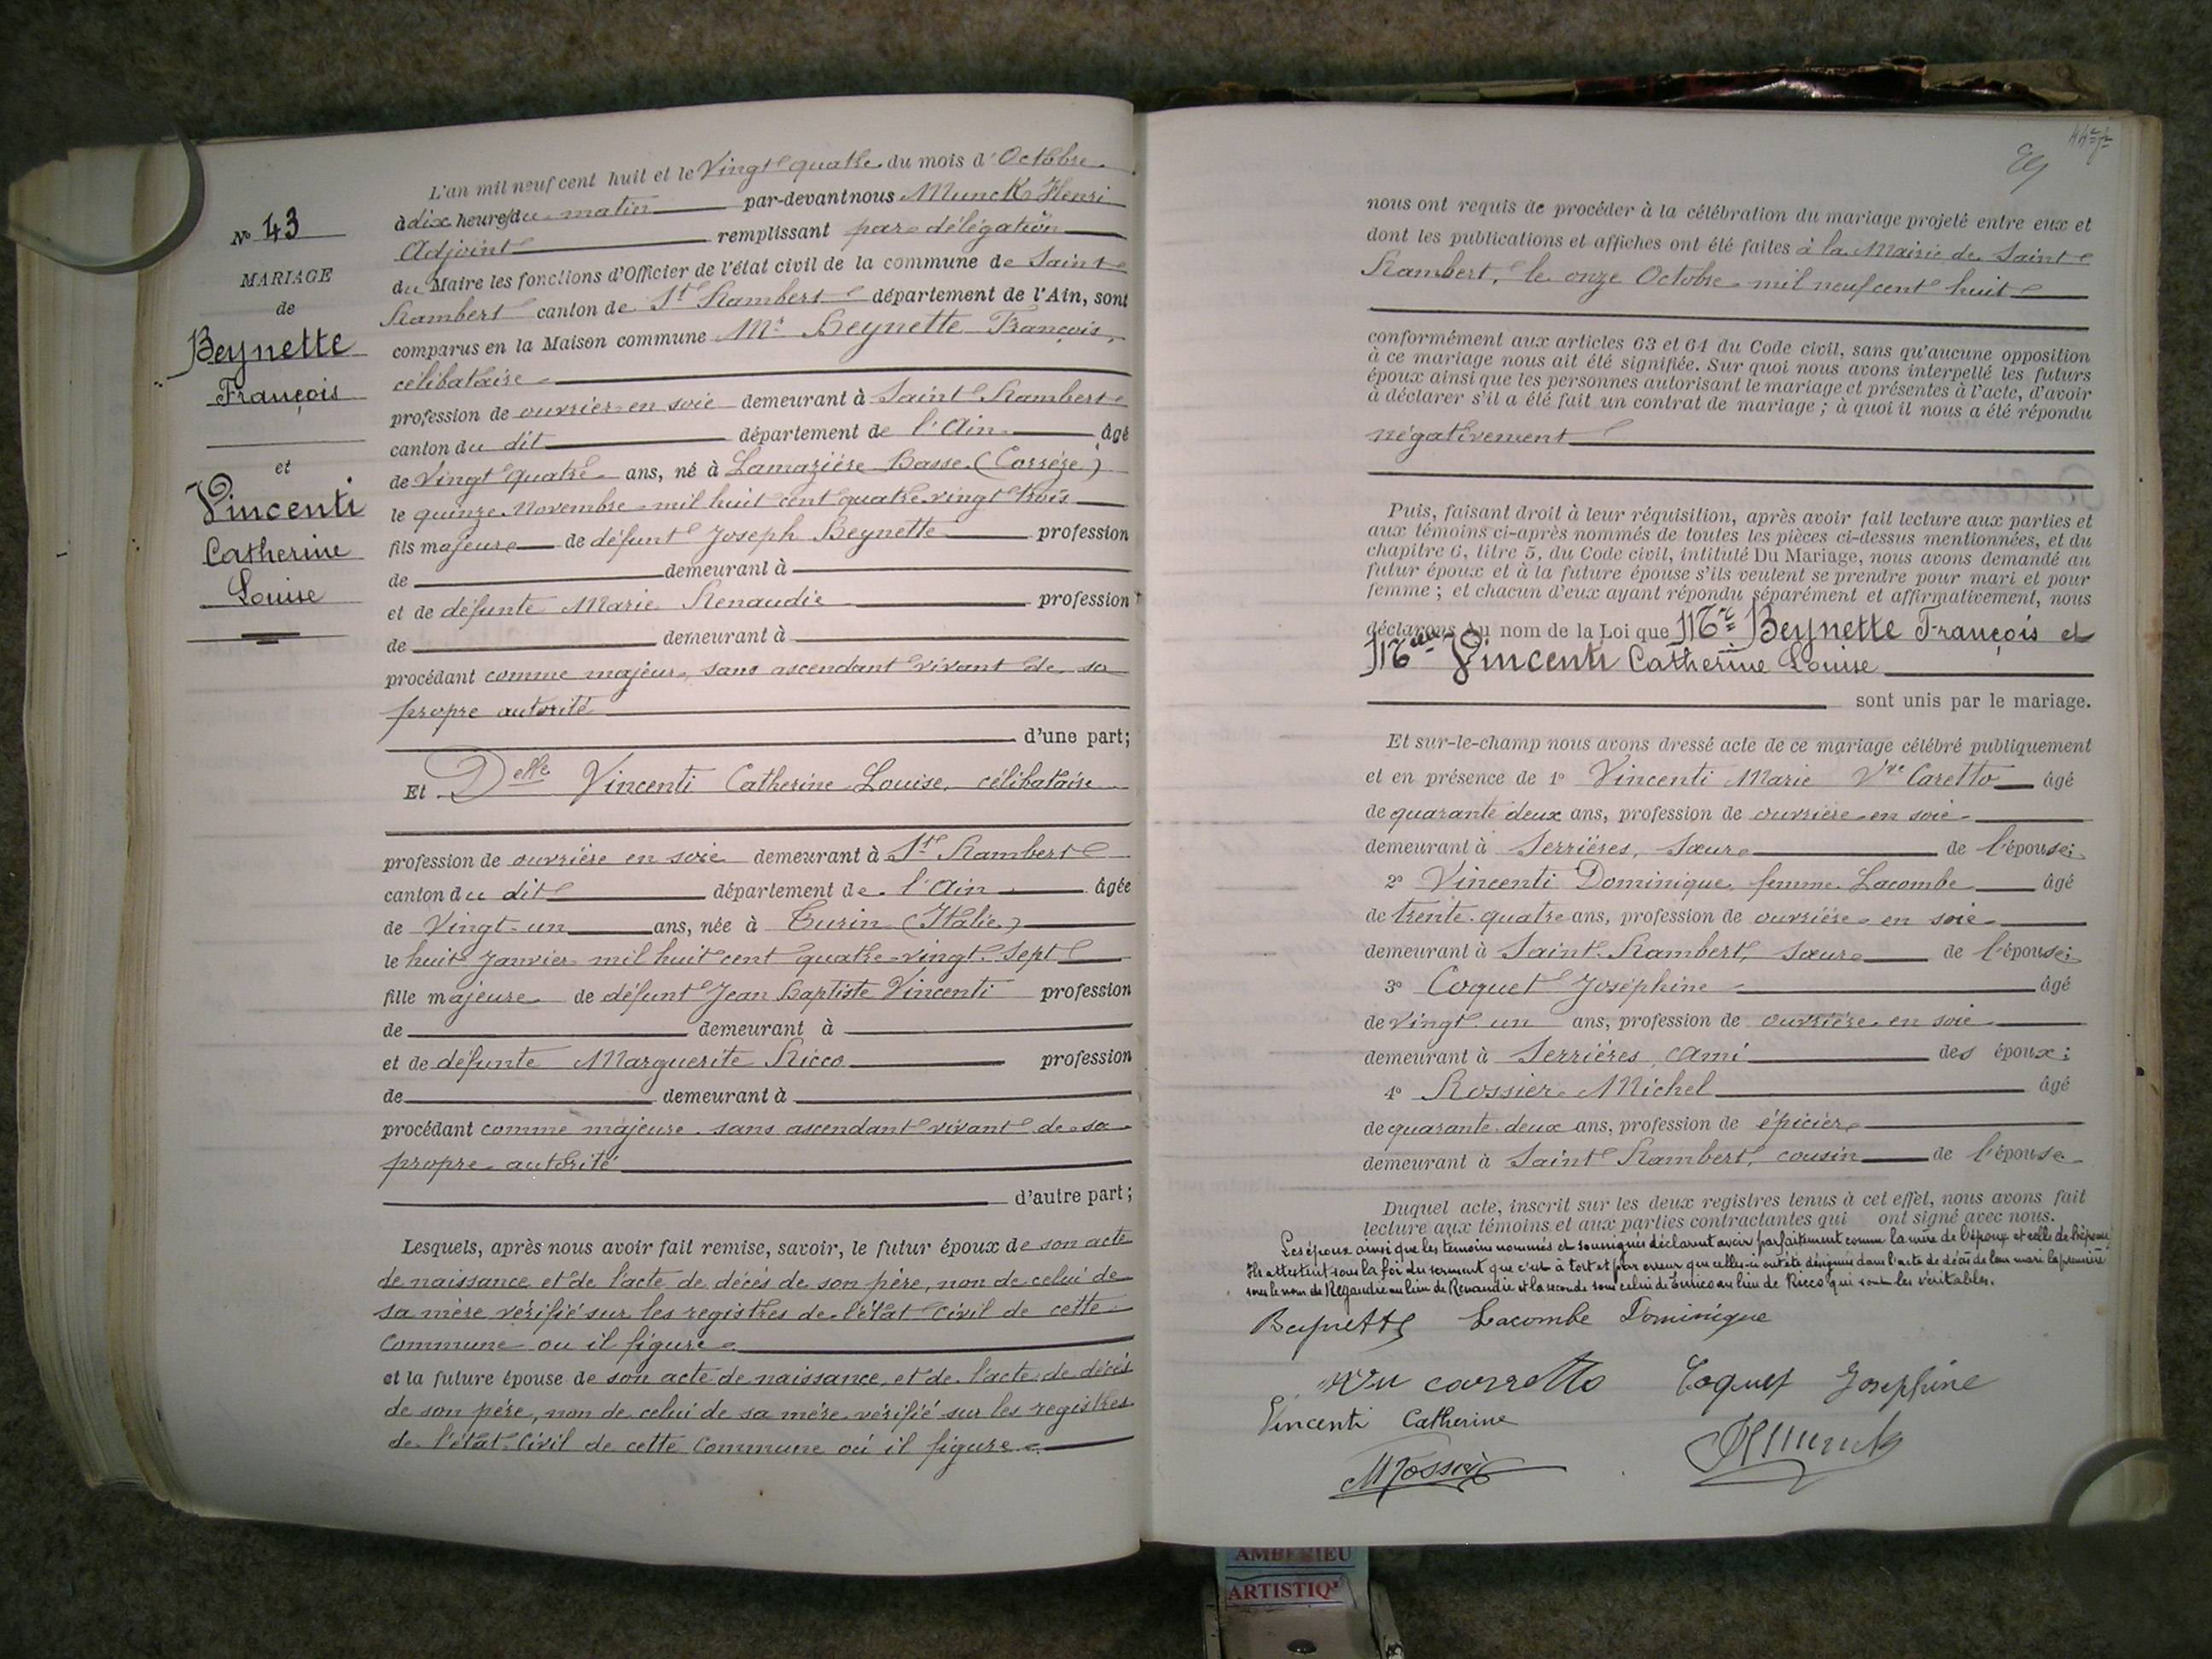 L'an mil neuf cent huit et le Vingt quatre du mois d'Octobre
à dix heures du matin par-devant nous Munck Henri
Adjoint remplissant par délégation
du Maire les fonctions d'Officier de l'état civil de la commune de Saint
Rambert canton de St Rambert département de l'Ain, sont
comparus en la Maison commune Mr Beynette François,
célibataire
profession de ouvrier en soie demeurant à Saint Rambert
canton du dit département de l'Ain âgé
de Vingt quatre ans, né à Lamazière Basse (Corrèze)
le quinze Novembre mil huit cent quatre vingt trois
fils majeur de défunt Joseph Beynette profession
de demeurant à
et de défunte Marie Renaudie profession
de demeurant à
procédant comme majeur, sans ascendant vivant de sa
propre autorité
d'une part;
Et Delle Vincenti Catherine Louise, célibataire
profession de ouvrière en soie demeurant à St Rambert
canton du dit département de l'Ain âgée
de Vingt-un ans, née à Turin (Italie)
le huit Janvier mil huit cent quatre-vingt-sept
fille majeure de défunt Jean Baptiste Vincenti profession
de demeurant à
et de défunte Marguerite Ricco profession
de demeurant à
procédant comme majeure sans ascendant vivant de sa
propre autorité
d'autre part;
Lesquels, après nous avoir fait remise, savoir, le futur époux de son acte
de naissance et de l'acte de décès de son père, non de celui de
sa mère vérifié sur les registres de l'état civil de cette
commune ou il figure
et la future épouse de son acte de naissance, et de l'acte de décès
de son père, non de celui de sa mère vérifié sur les registres
de l'état-Civil de cette Commune où il figure
No 43
MARIAGE
de
Beynette
François
et
Vincenti
Catherine
Louise
nous ont requis de procéder à la célébration du mariage projeté entre eux et
dont les publications et affiches ont été faites à la Mairie de Saint
Rambert, le onze Octobre mil neuf cent huit
conformément aux articles 63 et 64 du Code civil, sans qu'aucune opposition
à ce mariage nous ait été signifiée. Sur quoi nous avons interpellé les futurs
époux ainsi que les personnes autorisant le mariage et présentes à l'acte, d'avoir
à déclarer s'il a été fait un contrat de mariage ; à quoi il nous a été répondu
négativement
Puis, faisant droit à leur réquisition, après avoir fait lecture aux parties et
aux témoins ci-après nommés de toutes les pièces ci-dessus mentionnées, et du
chapitre 6, titre 5, du Code civil, intitulé Du Mariage, nous avons demandé au
futur époux et à la future épouse s'ils veulent se prendre pour mari et pour
femme ; et chacun d'eux ayant répondu séparément et affirmativement, nous
déclarons Au nom de la Loi que Mr Beynette François et
Melle Vincenti Catherine Louise
sont unis par le mariage.
Et sur-le-champ nous avons dressé acte de ce mariage célébré publiquement
et en présence de 1o Vincenti Marie Vve Caretto âgé
de quarante deux ans, profession de ouvrière en soie
demeurant à Serrières, Sœur de l'épouse;
2o Vincenti Dominique, femme Lacombe âgé
de trente-quatre ans, profession de ouvrière en soie
demeurant à Saint-Rambert, sœur de l'épouse;
3o Coquet Joséphine âgé
de vingt un ans, profession de ouvrière en soie
demeurant à Serrières, ami des époux;
4o Rossier Michel âgé
de quarante-deux ans, profession de épicier
demeurant à Saint Rambert, cousin de l'épouse
Duquel acte, inscrit sur les deux registres tenus à cet effet, nous avons fait
lecture aux témoins et aux parties contractantes qui ont signé avec nous.
Les époux ainsi que les témoins nommés et soussignés déclarent avoir parfaitement connu la mère de l'époux et celle de l'épouse
Ils attestent sous la foi du serment que c'est à tort et par erreur que celles-ci ont été désignées dans l'acte de décès de leur mari la première
sous le nom de Regaudie au lieu de Renaudie et la seconde sous celui de Enrico au lieu de Ricco qui sont les véritables.
Beynette Lacombe Dominique
carretto Coquet Joséphine
Vincenti Catherine
AMBERIEU
ARTISTIQ